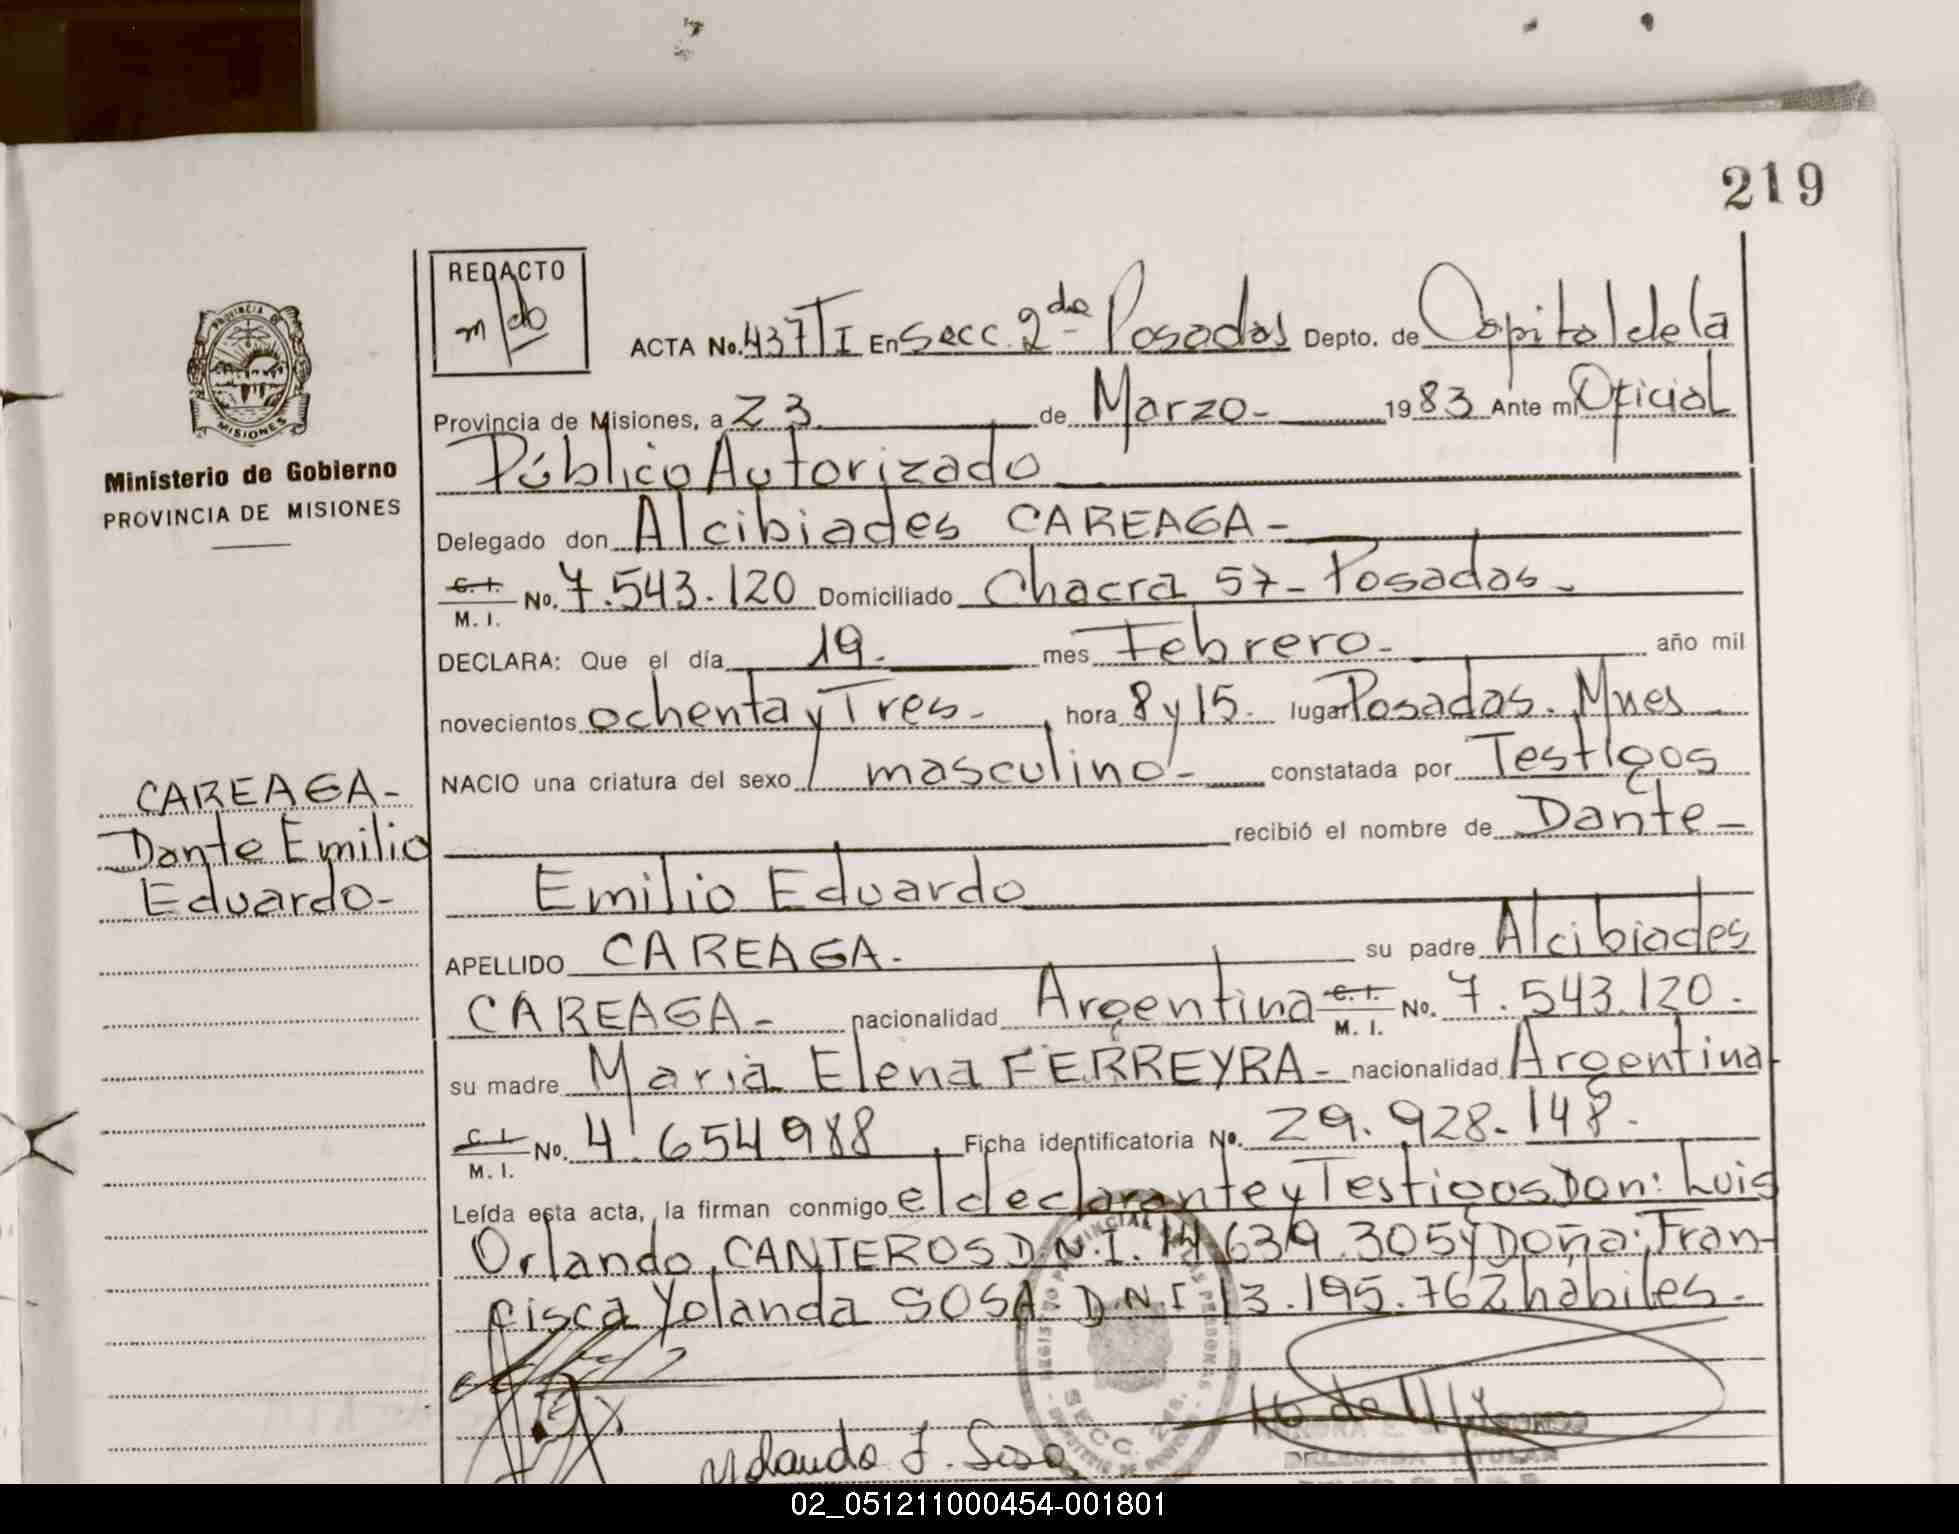 219
REDACTO
ACTA No. 437 T I En Secc. 2da Posadas Depto. de Capital de la
Provincia de Misiones, a 23 de Marzo- 1983 Ante mi Oficial
Público Autorizado
Ministerio de Gobierno
PROVINCIA DE MISIONES
Delegado don Alcibiades CAREAGA-
C. I. M. I. No. 7.543.120 Domiciliado Chacra 57- Posadas-
DECLARA: Que el día 19. mes Febrero- año mil
novecientos ochenta y Tres- hora 8 y 15. lugar Posadas. Mnes
NACIO una criatura del sexo masculino- constatada por Testigos
recibió el nombre de Dante-
CAREAGA-
Dante Emilio
Eduardo-
Emilio Eduardo
APELLIDO CAREAGA. su padre Alcibiades
CAREAGA- nacionalidad Argentina C. I. M. I. No. 7.543.120.
su madre Maria Elena FERREYRA- nacionalidad Argentina
C. I. M. I. No. 4.654.988 Ficha identificatoria No. 29.928.148.
Leída esta acta, la firman conmigo el declarante y Testigos Don: Luis
Orlando CANTEROS D.N.I. 14.639.305 y Doña: Fran-
cisca Yolanda SOSA D.N.I 13.195.762 habiles.
Yolanda F. Sosa
SECC. 2da.
DELEGADA TITULAR
02_051211000454-001801